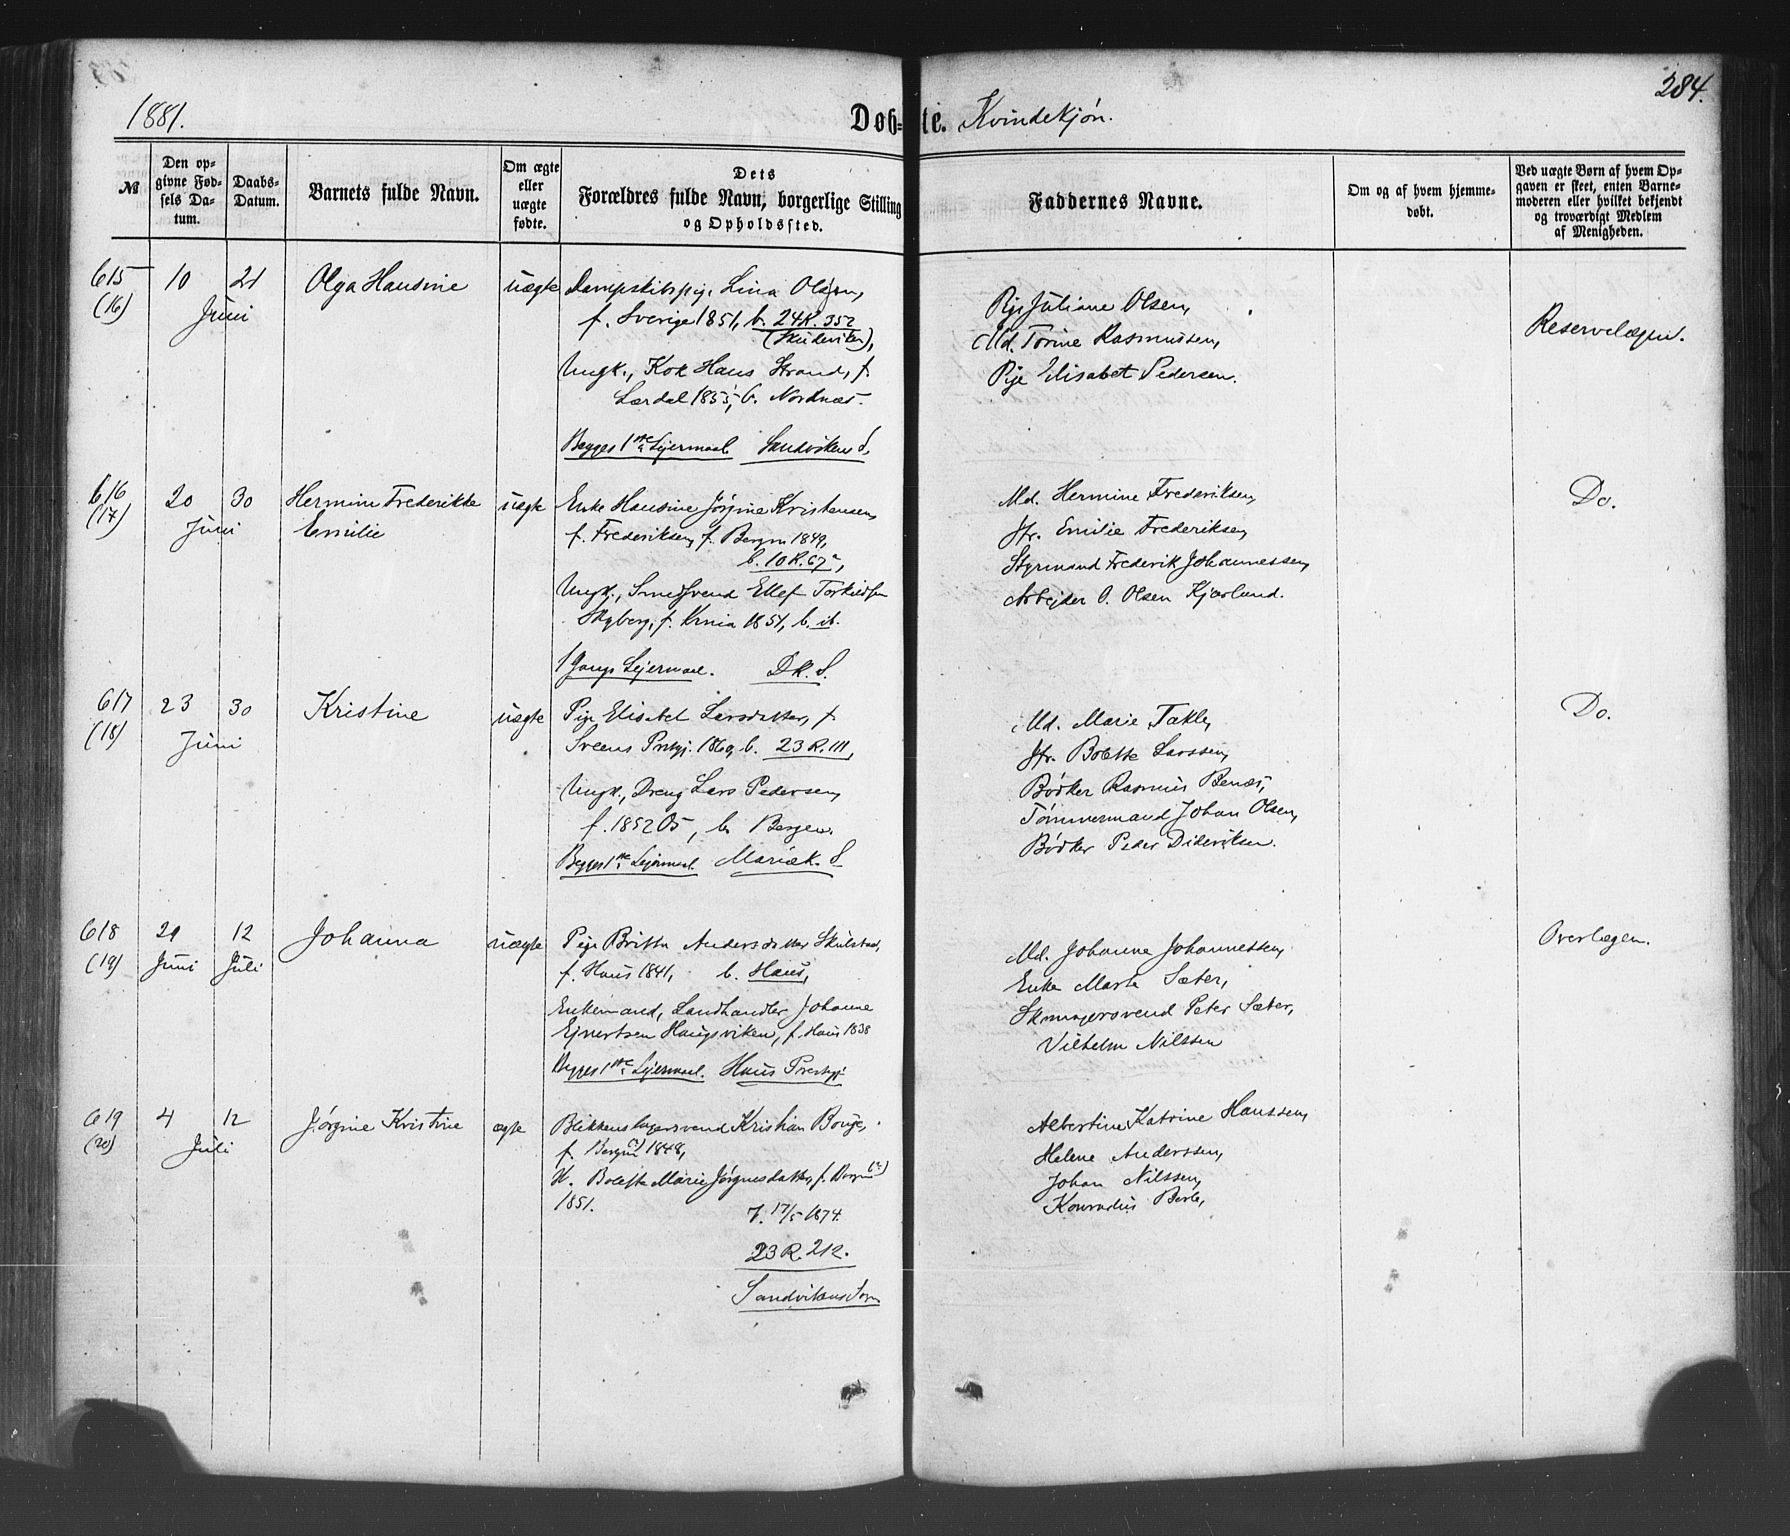 1881.
Døb=te. Kvindekjøn.
284.
№
Den opgivne Fødsels Datum.
Daabs-Datum.
Barnets fulde Navn.
Om ægte eller uægte fødte.
Dets Forældres fulde Navn, borgerlige Stilling og Opholdssted.
Faddernes Navne.
Om og af hvem hjemmedøbt.
Ved uægte Børn af hvem Opgaven er skeet, enten Barnemoderen eller hvilket bekjendt og troværdigt Medlem af Menigheden.
615 (16)
10 21
Juni
Olga Hansine
uægte
Dampskibspige Lina Olsen,
f. Sverige 1851, b. 24 R. 352
(Skudeviken),
Ungk., Kok Hans Strand, f.
Lærdal 1855, b. Nordnæs.
Begges 1ste Lejermaal Sandviken S.
Pige Juliane Olsen,
Md. Torine Rasmussen,
Pige Elisabet Pedersen.
Reservelægen.
616 (17)
20 30
Juni
Hermine Frederikke
Emilie
uægte
Enke Hansine Jørgine Kristensen,
f. Frederiksen, f. Bergen 1849,
b. 10 R. 67a,
Ungk., Smedsvend Ellef Torkildsen
Skyberg, f. Krnia 1851, b. ib.
1 Gangs Lejermaal. Dk. S.
Md. Hermine Frederiksen,
Jfr. Emilie Frederiksen,
Styrmand Frederik Johannessen,
Arbejder O. Olsen Kjærland.
Do.
617 (18)
23 30
Juni
Kristine
uægte
Pige Elisabet Larsdatter, f.
Sveens Prstgj. 1860, b. 23 R. 111,
Ungk., Dreng Lars Pedersen,
f. 1852 Os, b. Bergen.
Begges 1ste Lejermaal Mariæk. S
Md. Marie Takle,
Jfr. Bolette Larssen,
Bødker Rasmus Benæs,
Tømmermand Johan Olsen,
Bødker Peder Dideriksen.
Do.
618 (19)
29 12
Juni Juli
Johanna
uægte
Pige Britta Andersdatter Skulstad,
f. Haus 1841, b. Haus,
Enkemand, Landhandler Johanne
Ejvertsen Haugsviken, f. Haus 1838
Begges 1ste Lejermaal. Haus Prestgj.
Md. Johanne Johannessen,
Enke Marte Sæter,
Skomagersvend Peter Sæter,
Vilhelm Nilssen
Overlægen.
619 (20)
4 12
Juli
Jørgine Kristine
ægte
Blikkenslagersvend Kristian Bouge,
f. Bergen 1848,
H. Bolette Marie Jørgensdatter, f. Bergen
1851.
V. 17/5 1874.
23 R. 212.
Sandvikens Sogn
Albertine Katrine Hanssen,
Helene Anderssen,
Johan Nilssen,
Konradus Berle,